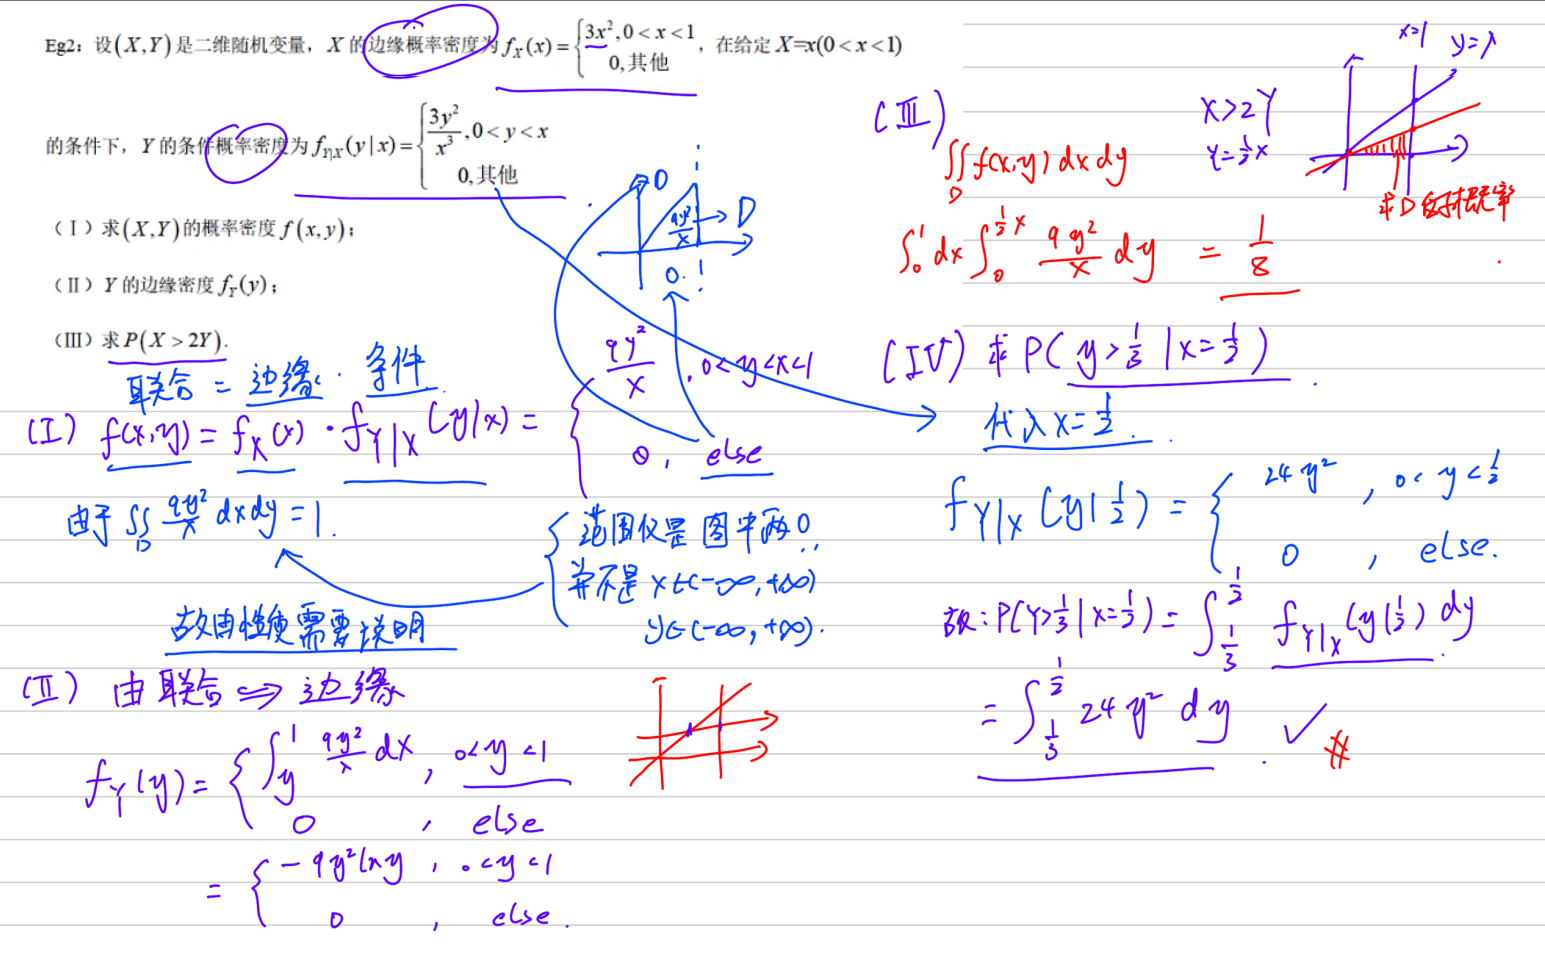 Eg2：设(X,Y)是二维随机变量，X 的边缘概率密度为 f_X(x)={3x²,0<x<1 0,其他 ，在给定 X=x(0<x<1)
的条件下，Y 的条件概率密度为 f_{Y|X}(y|x)={3y²/x³,0<y<x 0,其他
（Ⅰ）求(X,Y)的概率密度 f(x,y)；
（Ⅱ）Y 的边缘密度 f_Y(y)；
（Ⅲ）求 P(X>2Y).
联合 = 边缘 · 条件
(Ⅰ) f(x,y) = f_X(x) · f_{Y|X}(y|x) = { 9y²/x , 0<y<x<1
0 , else
0
9y²/x
D
0
由于 ∬_D 9y²/x dxdy = 1.
范围仅是图中两0,
并不是 x∈(-∞,+∞)
y∈(-∞,+∞).
需要说明
(Ⅱ) 由联合 ⇔ 边缘
f_Y(y) = { ∫_y^1 9y²/x dx , 0<y<1
0 , else
= { -9y²lny , 0<y<1
0 , else.
(Ⅲ)
X>2Y
Y=½X
x=1
y=x
求D的概率
∬_D f(x,y) dxdy
∫_0^1 dx ∫_0^{½x} 9y²/x dy = 1/8
(Ⅳ) 求 P( y>1/3 | x=1/2 )
代入 x=1/2.
f_{Y|X}(y|1/2) = { 24y² , 0<y<1/2
0 , else.
故: P(Y>1/3 | x=1/2) = ∫_{1/3}^{1/2} f_{Y|X}(y|1/2) dy
= ∫_{1/3}^{1/2} 24y² dy ✓ #